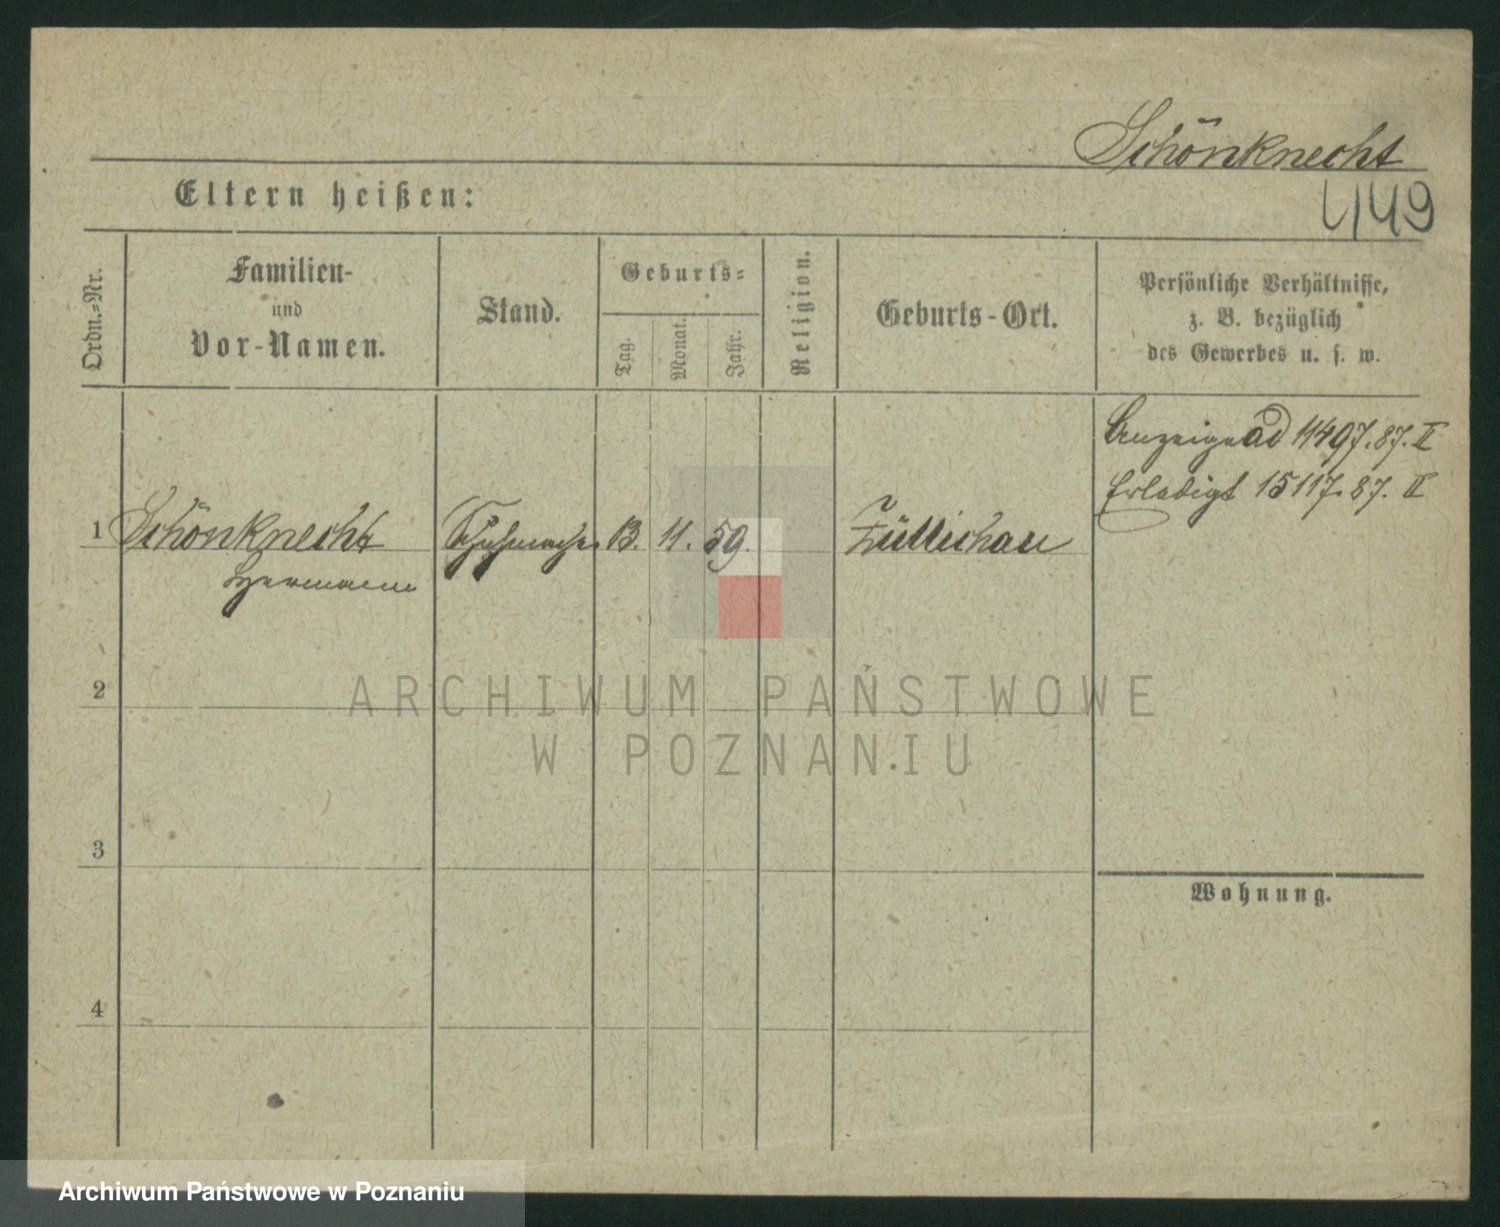 Schönknecht
449
Eltern heißen:
Ordn.-Nr.
Familien-
und
Vor-Namen.
Stand.
Geburts-
Tag.
Monat.
Jahr.
Religion.
Geburts-Ort.
Persönliche Verhältnisse,
z. B. bezüglich
des Gewerbes u. s. w.
Anzeige ad 11497.87.II
Erledigt 15117.87. II
1 Schönknecht Schuhmacher 13. 11. 59. Züllichau
Hermann
2
ARCHIWUM PAŃSTWOWE
W POZNANIU
3
Wohnung.
4
Archiwum Państwowe w Poznaniu